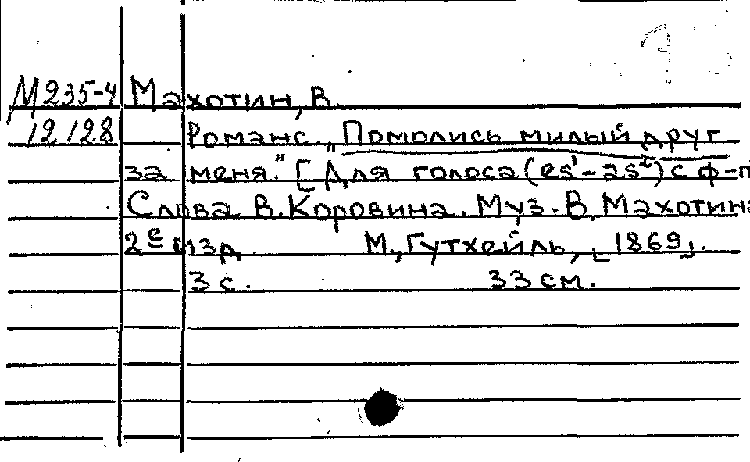 М235-4 Махотин, В.
12128 Романс „Помолись милый друг
за меня." [Для голоса (es¹-as²) с ф-п
Слова В. Коровина. Муз. В. Махотина
2е изд М., Гутхейль, [1869].
3 с. 33 см.